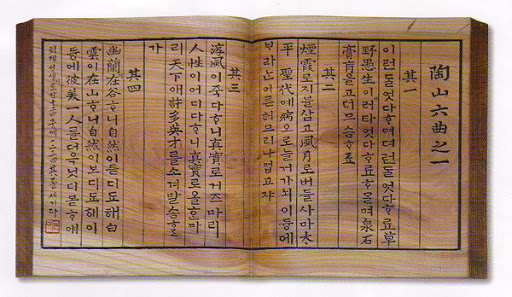 陶山六曲之一
其一
이런ᄃᆞᆯ엇다ᄒᆞ며뎌런ᄃᆞᆯ엇다ᄒᆞ료草
野愚生이러타엇다ᄒᆞ료ᄒᆞᄆᆞᆯ며泉石
膏肓을고뎌므슴ᄒᆞ료
其二
煙霞로지블삼고風月로버들사마太
平聖代예病오로늘거가뇌이듕에
ᄇᆞ라ᄂᆞᆫ이른허므리나업고쟈
其三
淳風이죽다ᄒᆞ니眞實로거즈마리
人性이어디다ᄒᆞ니眞實로올ᄒᆞᆫ마
리天下애許多英才를소겨말ᄉᆞᆷᄒᆞᆯ
가
其四
幽蘭在谷ᄒᆞ니自然이듣디됴해白
雲이在山ᄒᆞ니自然이보디됴해이
듕에彼美一人를더옥닛디몯ᄒᆞ애